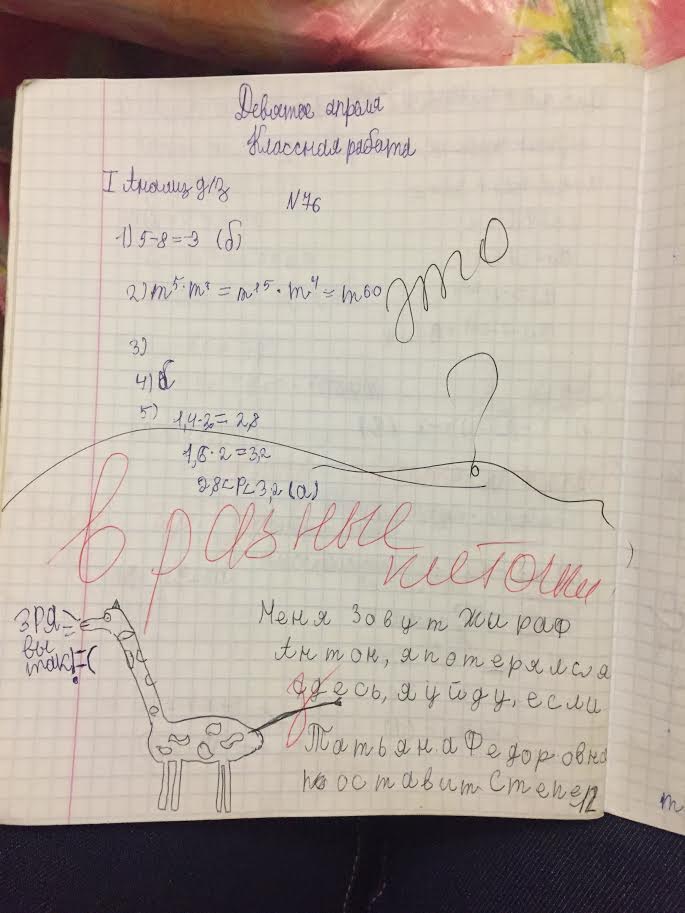 Девятое апреля
Классная работа
I Анализ д/з
N76
1) 5-8=-3 (б)
2) m⁵·m³ = m¹⁵·m⁴ = m60
это
?
3)
4) б
5) 1,4·2=2,8
1,6·2=3,2
2,8<P<3,2 (а)
в разные
клеточки
ЗРЯ
вы
так! =(
Меня Зовут Жираф
Антон, я потерялся
здесь, я уйду, если
Татьяна Федоровна
поставит Степе 12